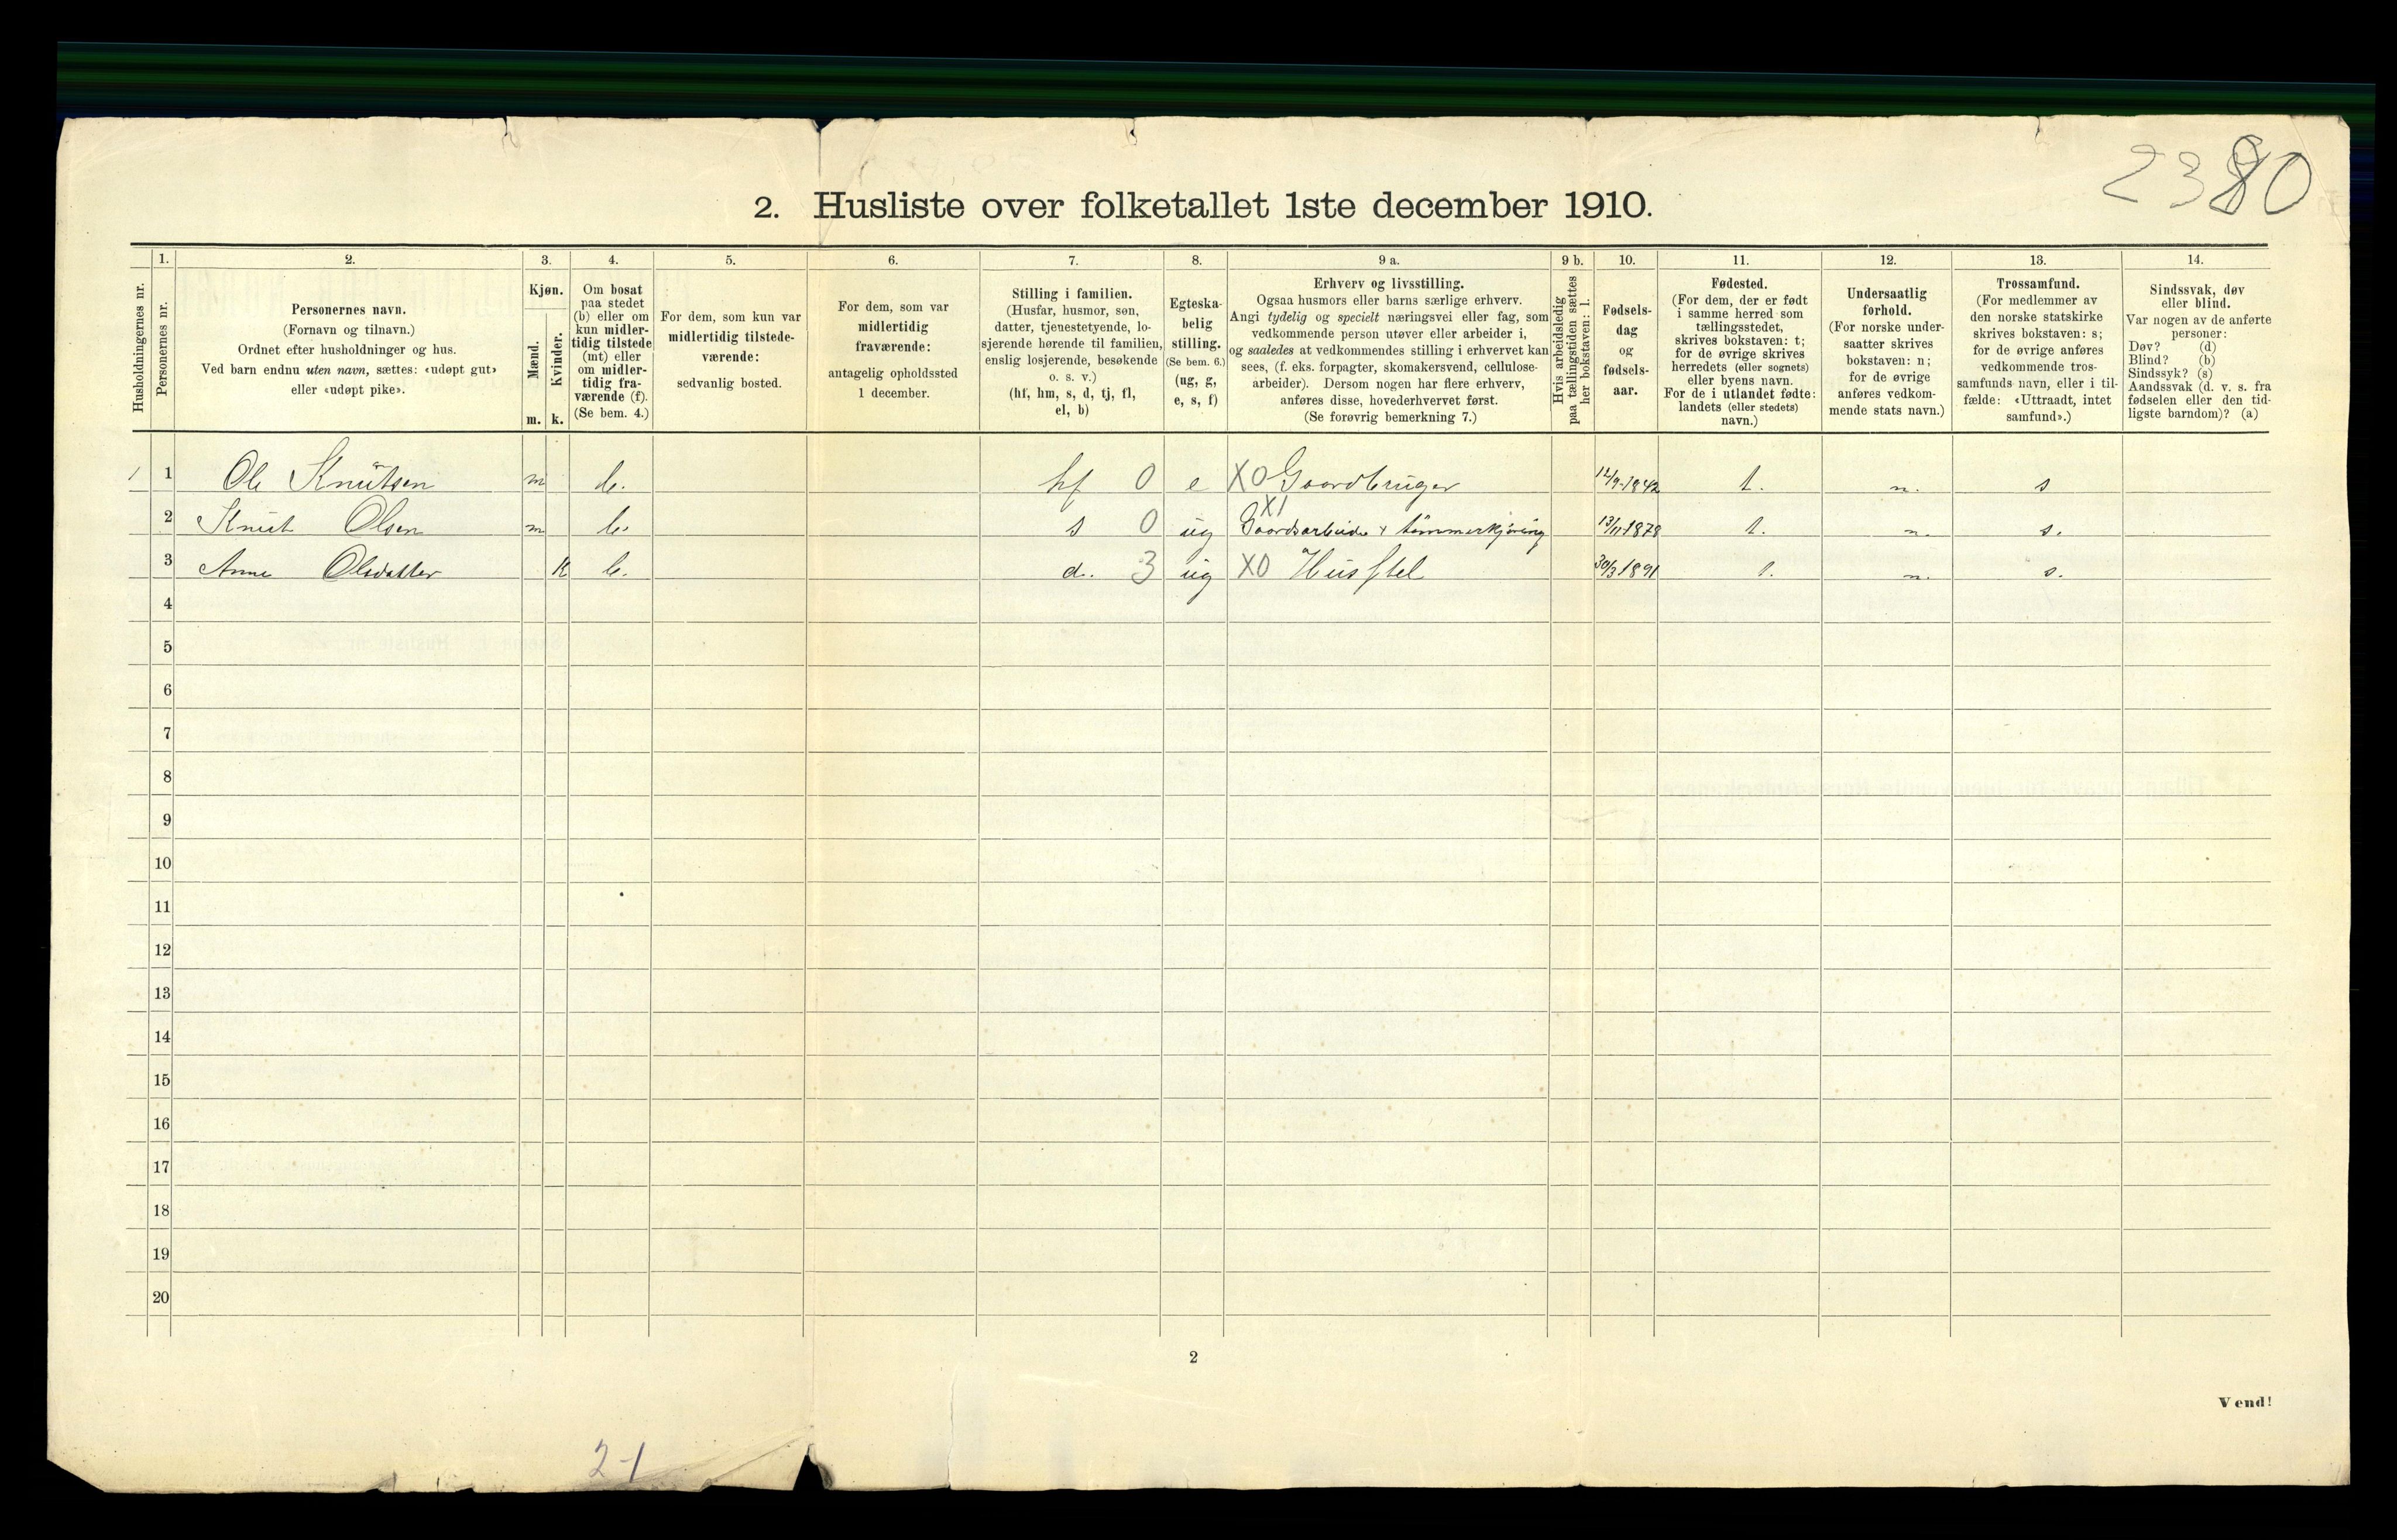 2380
2. Husliste over folketallet 1ste december 1910.
Husholdningernes nr.
1.
Personernes nr.
2.
Personernes navn.
(Fornavn og tilnavn.)
Ordnet efter husholdninger og hus.
Ved barn endnu uten navn, sættes: «udøpt gut»
eller «udøpt pike».
3.
Kjøn.
Mænd.
Kvinder.
m. k.
4.
Om bosat
paa stedet
(b) eller om
kun midler-
tidig tilstede
(mt) eller
om midler-
tidig fra-
værende (f).
(Se bem. 4.)
5.
For dem, som kun var
midlertidig tilstede-
værende:
sedvanlig bosted.
6.
For dem, som var
midlertidig
fraværende:
antagelig opholdssted
1 december.
7.
Stilling i familien.
(Husfar, husmor, søn,
datter, tjenestetyende, lo-
sjerende hørende til familien,
enslig losjerende, besøkende
o. s. v.)
(hf, hm, s, d, tj, fl,
el, b)
8.
Egteska-
belig
stilling.
(Se bem. 6.)
(ug, g,
e, s, f)
9 a.
Erhverv og livsstilling.
Ogsaa husmors eller barns særlige erhverv.
Angi tydelig og specielt næringsvei eller fag, som
vedkommende person utøver eller arbeider i,
og saaledes at vedkommendes stilling i erhvervet kan
sees, (f. eks. forpagter, skomakersvend, cellulose-
arbeider). Dersom nogen har flere erhverv,
anføres disse, hovederhvervet først.
(Se forøvrig bemerkning 7.)
9 b.
Hvis arbeidsledig
paa tællingstiden sættes
her bokstaven: l.
10.
Fødsels-
dag
og
fødsels-
aar.
11.
Fødested.
(For dem, der er født
i samme herred som
tællingsstedet,
skrives bokstaven: t;
for de øvrige skrives
herredets (eller sognets)
eller byens navn.
For de i utlandet fødte:
landets (eller stedets)
navn.)
12.
Undersaatlig
forhold.
(For norske under-
saatter skrives
bokstaven: n;
for de øvrige
anføres vedkom-
mende stats navn.)
13.
Trossamfund.
(For medlemmer av
den norske statskirke
skrives bokstaven: s;
for de øvrige anføres
vedkommende tros-
samfunds navn, eller i til-
fælde: «Uttraadt, intet
samfund».)
14.
Sindssvak, døv
eller blind.
Var nogen av de anførte
personer:
Døv? (d)
Blind? (b)
Sindssyk? (s)
Aandssvak (d. v. s. fra
fødselen eller den tid-
ligste barndom)? (a)
1 1 Ole Knutsen m b. hf 0 e X0 Gaardbruger 12/9-1842 t. n. s
X1
2 Knut Olsen m b. s 0 ug Gaardsarbeide + tømmerkjøring 13/11 1878 t. n. s.
3 Anne Olsdatter K b. d. 3 ug X0 Husstel 30/3 1891 t. n. s.
4
5
6
7
8
9
10
11
12
13
14
15
16
17
18
19
20
2
Vend!
2-1